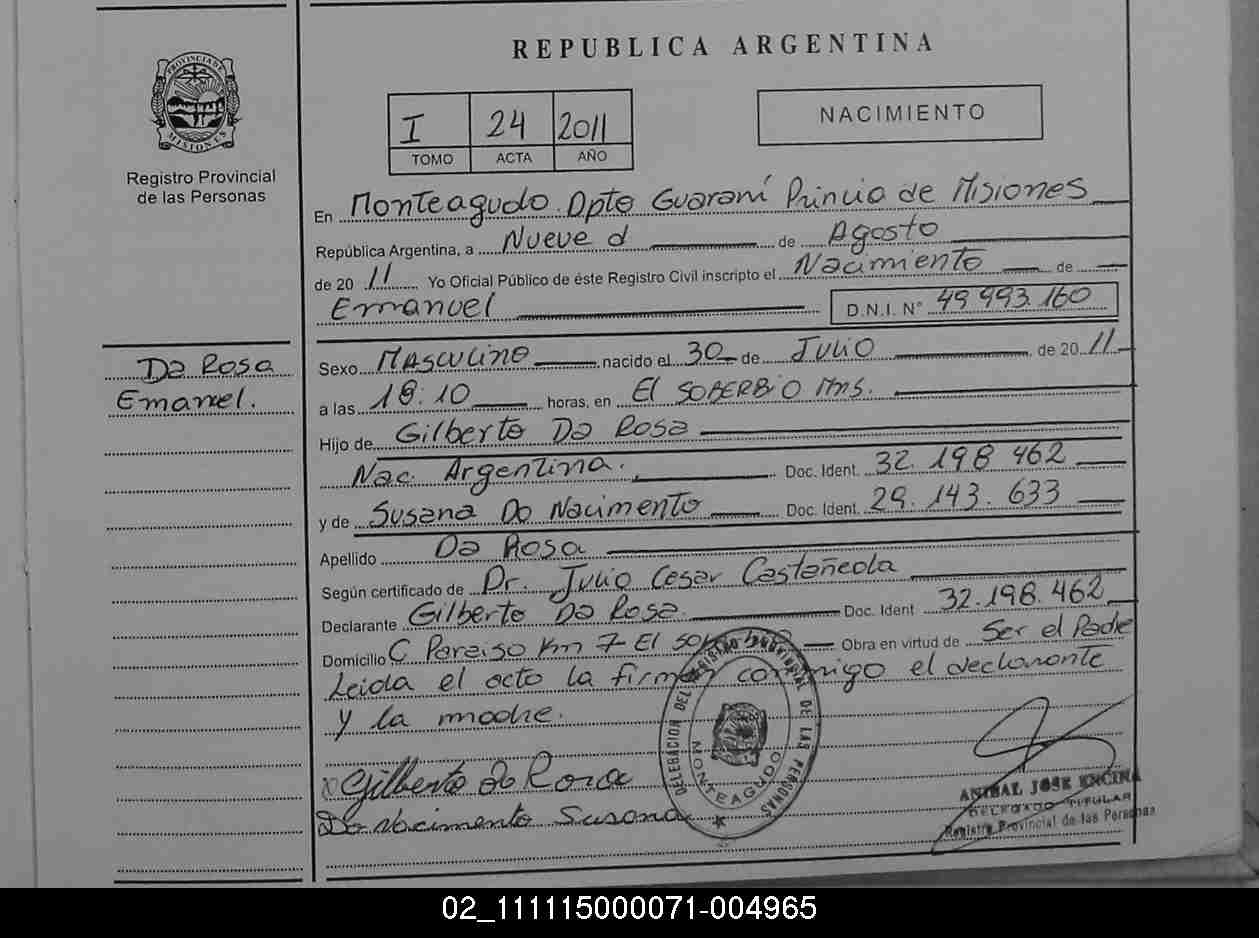 REPUBLICA ARGENTINA
PROVINCIA DE MISIONES
Registro Provincial
de las Personas
I 24 2011
TOMO ACTA AÑO
NACIMIENTO
En Monteagudo Dpto Guaraní Princia de Misiones
República Argentina, a Nueve d de Agosto
de 2011 Yo Oficial Público de éste Registro Civil inscripto el Nacimiento de
Emanuel D.N.I. N° 49 993.160
Da Rosa
Emanuel.
Sexo Masculino nacido el 30 de Julio de 2011
a las 18:10 horas, en El SOBERBIO Mns.
Hijo de Gilberto Da Rosa
Nac. Argentina. Doc. Ident. 32.198 462
y de Susana Do Nacimento Doc. Ident. 29.143.633
Apellido Da Rosa
Según certificado de Dr. Julio Cesar Castañeola
Declarante Gilberto Da Rosa. Doc. Ident 32.198.462
Domicilio C Paraiso Km 7 El Obra en virtud de Ser el Padre
Leida el acto la firman conmigo el declarante
y la madre.
Gilberto do Rosa
Do Nacimento Susana
DELEGACION DEL REGISTRO PROVINCIAL DE LAS PERSONAS
MONTEAGUDO
ANIBAL JOSE ENCINA
DELEGADO TITULAR
Registro Provincial de las Personas
02_111115000071-004965